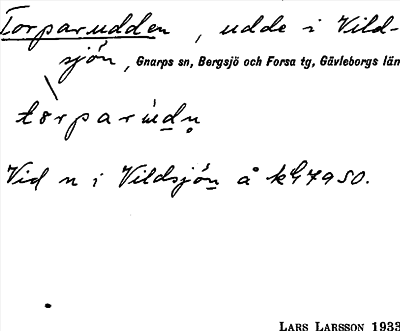 Torparudden, udde i Vild-
sjön, Gnarps sn, Bergsjö och Forsa tg, Gävleborgs län
Vid n i Vildsjön å
LARS LARSSON 1933